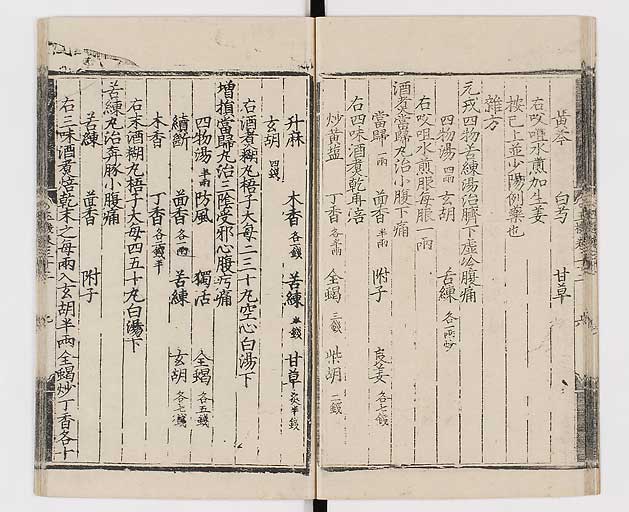 黃芩　白芍　甘草
右㕮咀水煎加生姜
按已上並少陽例藥也
雜方
元戎四物苦練湯治臍下虛冷腹痛
四物湯四兩　玄胡　苦練各一兩炒
右㕮咀水煎服每服一兩
酒煮當歸丸治小腹下痛
當歸一兩　茴香半兩　附子　良姜各七錢
右四味酒煮乾再焙
炒黃塩　丁香各半兩　全蝎三錢　柴胡二錢
升麻　木香各一錢　苦練半錢　甘草炙半錢
玄胡四錢
右酒煮糊丸梧子大每二三十丸空心白湯下
增損當歸丸治三陰受邪心腹疠痛
四物湯半兩　防風　獨活　全蝎各五錢
續斷　茴香各一兩　苦練　玄胡各七錢
木香　丁香各二錢半
右末酒糊丸梧子大每四五十丸白湯下
苦練丸治奔豚小腹痛
苦練　茴香　附子
右三味酒煮焙乾末之每兩入玄胡半兩全蝎炒丁香各十